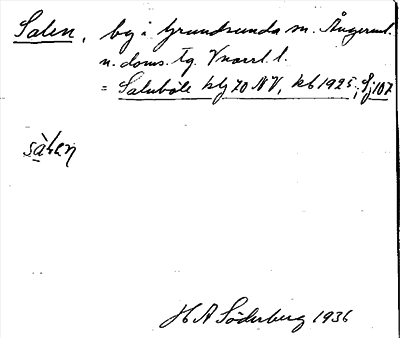 Salen, by i Grundsunda sn. Ångerml.
n. doms. Tg. Vnorrl. l.
= Saluböle kbj 70 NV, kb 1925; Sj 107
sàlen
H A Söderberg 1936